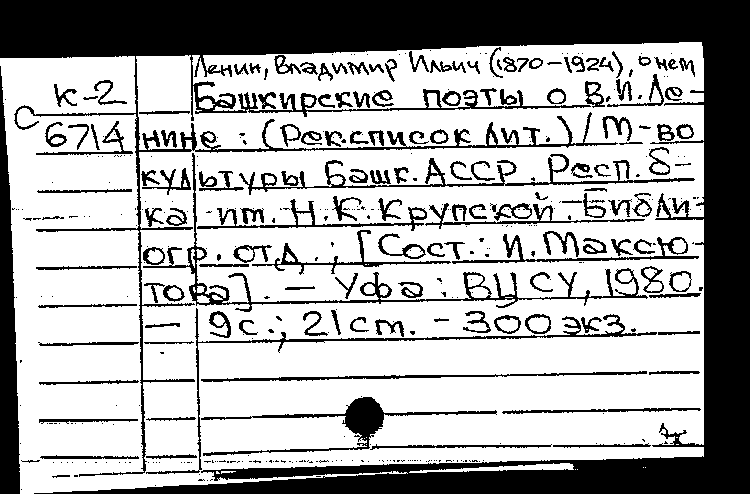 Ленин, Владимир Ильич (1870-1924), о нем
К-2
Башкирские поэты о В.И.Ле-
С
6714
нине : (Рек.список лит.) / М-во
культуры Башк.АССР. Респ. б-
ка им. Н.К.Крупской. Библи-
огр. отд. ; [Сост.: И.Максю-
това]. — Уфа : ВЦ СУ, 1980.
— 9с.; 21 см. - 300 экз.